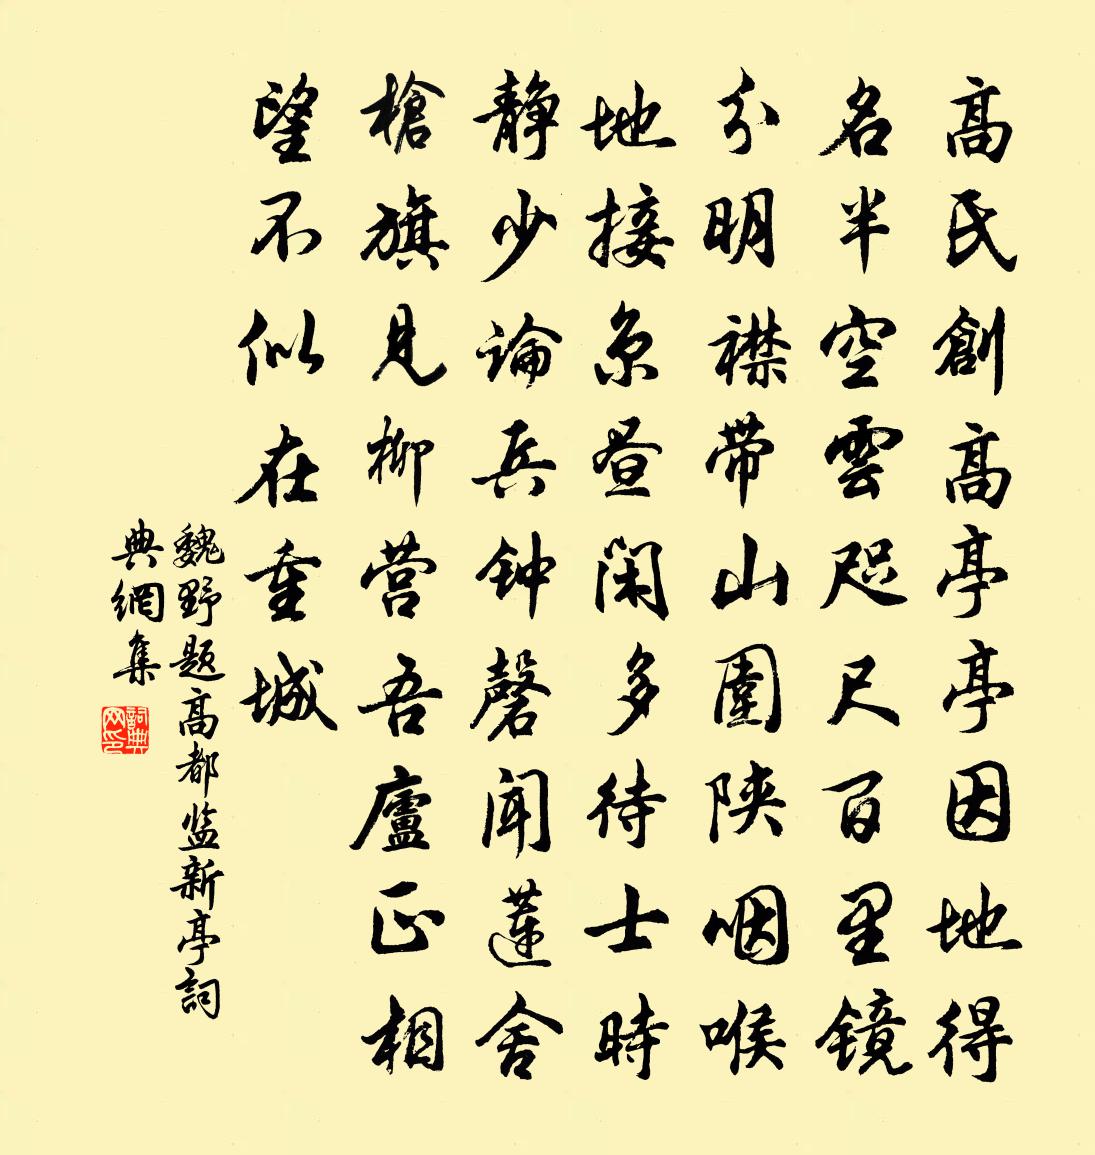 高民創高亭亭因地得
名半空雲咫尺百里镜
分明襟带山圍陕咽喉
地接京昼闲多待士時
静少論兵钟磬闻蓮舍
槍旗見柳营吾廬正相
望不似在重城
魏野题高都监新亭詞
典網集
詞典
网印